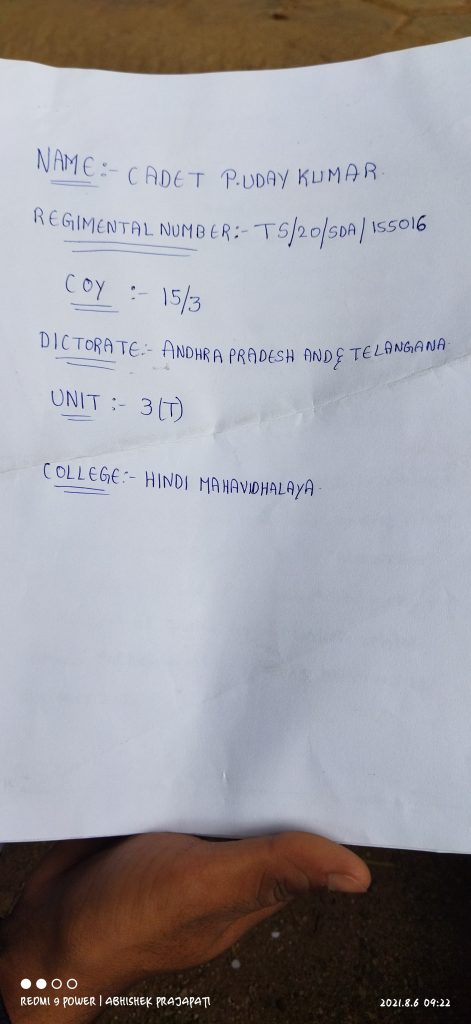 NAME:- CADET P.UDAY KUMAR.
REGIMENTAL NUMBER:- TS/20/SDA/155016
COY :- 15/3
DICTORATE:- ANDHRA PRADESH AND & TELANGANA.
UNIT :- 3(T)
COLLEGE:- HINDI MAHAVIDHALAYA.
REDMI 9 POWER | ABHISHEK PRAJAPATI
2021.8.6 09:22